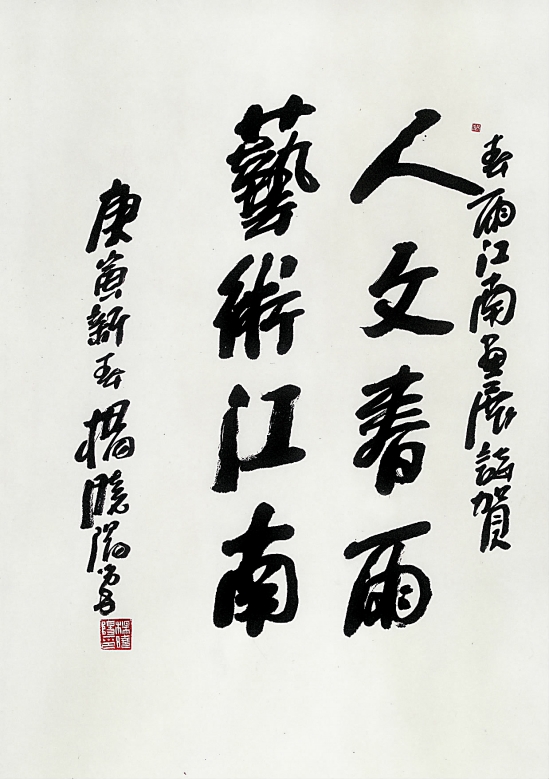 春雨江南画展誌賀
人文春雨
藝術江南
庚寅新春楊曉陽書